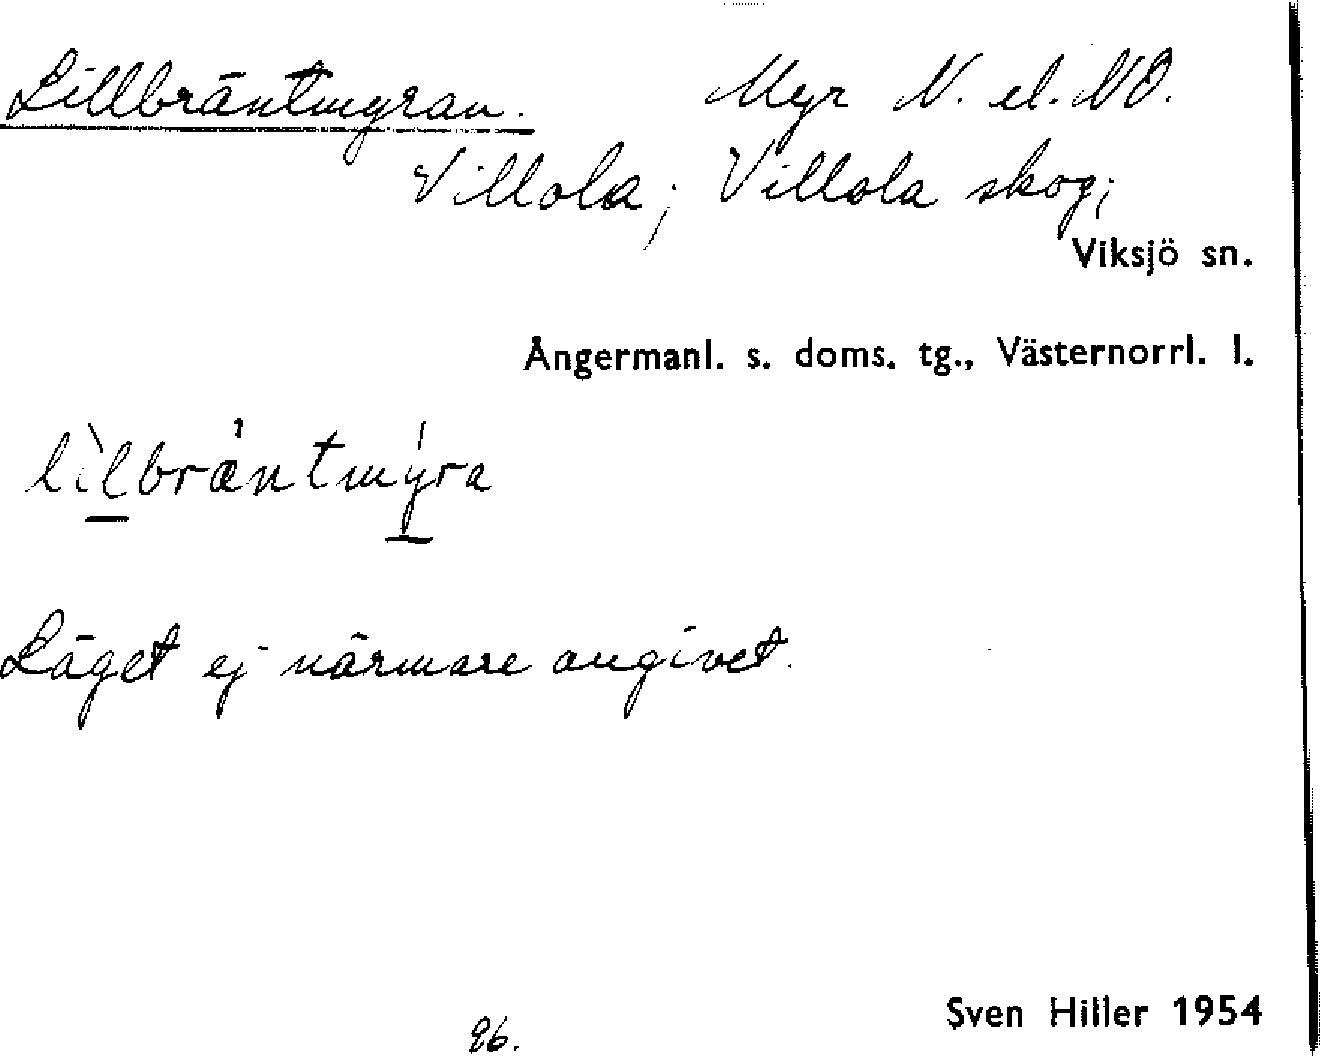 Lillbräntmyran. Myr N. el. NO.
Villola; Villola skog;
Viksjö sn.
Ångermanl. s. doms. tg., Västernorrl. l.
lìlbrǽntmýra
Läget ej närmare angivet.
Sven Hiller 1954
96.